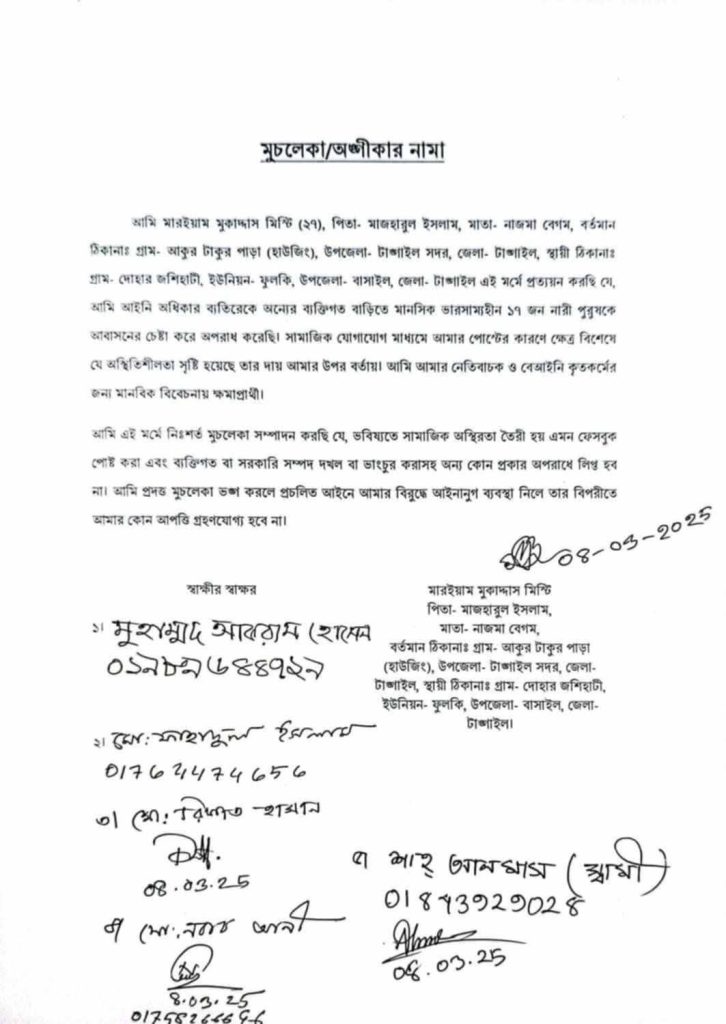 মুচলেকা/অঙ্গীকার নামা
আমি মারইয়াম মুকাদ্দাস মিস্টি (২৭), পিতা- মাজহারুল ইসলাম, মাতা- নাজমা বেগম, বর্তমান
ঠিকানাঃ গ্রাম- আকুর টাকুর পাড়া (হাউজিং), উপজেলা- টাঙ্গাইল সদর, জেলা- টাঙ্গাইল, স্থায়ী ঠিকানাঃ
গ্রাম- দোহার জশিহাটী, ইউনিয়ন- ফুলকি, উপজেলা- বাসাইল, জেলা- টাঙ্গাইল এই মর্মে প্রত্যয়ন করছি যে,
আমি আইনি অধিকার ব্যতিরেকে অন্যের ব্যক্তিগত বাড়িতে মানসিক ভারসাম্যহীন ১৭ জন নারী পুরুষকে
আবাসনের চেষ্টা করে অপরাধ করেছি। সামাজিক যোগাযোগ মাধ্যমে আমার পোস্টের কারণে ক্ষেত্র বিশেষে
যে অস্থিতিশীলতা সৃষ্টি হয়েছে তার দায় আমার উপর বর্তায়। আমি আমার নেতিবাচক ও বেআইনি কৃতকর্মের
জন্য মানবিক বিবেচনায় ক্ষমাপ্রার্থী।
আমি এই মর্মে নিঃশর্ত মুচলেকা সম্পাদন করছি যে, ভবিষ্যতে সামাজিক অস্থিরতা তৈরী হয় এমন ফেসবুক
পোষ্ট করা এবং ব্যক্তিগত বা সরকারি সম্পদ দখল বা ভাংচুর করাসহ অন্য কোন প্রকার অপরাধে লিপ্ত হব
না। আমি প্রদত্ত মুচলেকা ভঙ্গ করলে প্রচলিত আইনে আমার বিরুদ্ধে আইনানুগ ব্যবস্থা নিলে তার বিপরীতে
আমার কোন আপত্তি গ্রহণযোগ্য হবে না।
08-03-2025
মারইয়াম মুকাদ্দাস মিস্টি
পিতা- মাজহারুল ইসলাম,
মাতা- নাজমা বেগম,
বর্তমান ঠিকানাঃ গ্রাম- আকুর টাকুর পাড়া
(হাউজিং), উপজেলা- টাঙ্গাইল সদর, জেলা-
টাঙ্গাইল, স্থায়ী ঠিকানাঃ গ্রাম- দোহার জশিহাটী,
ইউনিয়ন- ফুলকি, উপজেলা- বাসাইল, জেলা-
টাঙ্গাইল।
স্বাক্ষীর স্বাক্ষর
১। মুহাম্মুদ হোসেন
২। মো: ইসলাম
01764474656
৩। মো: হাসান
08.03.25
৪। মো: আলী
8.03.25
৫। শাহ্ আলমাস (স্বামী)
01843929028
08.03.25